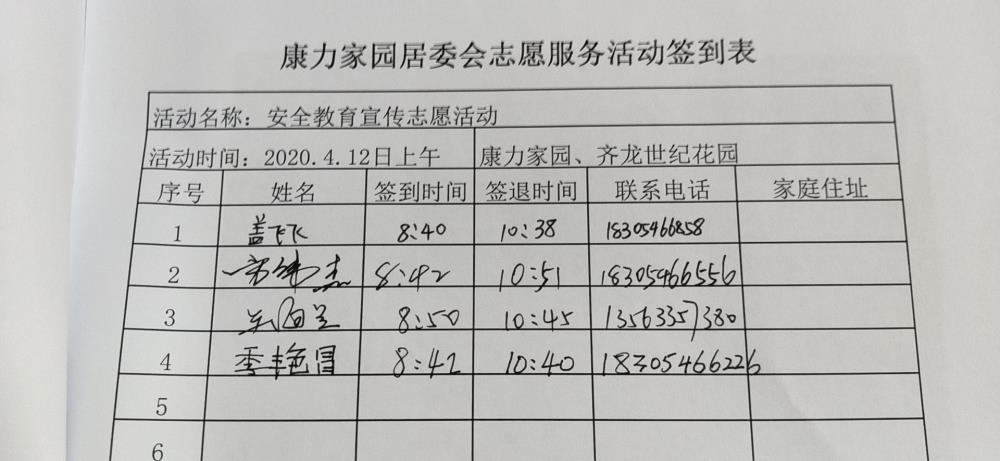 康力家园居委会志愿服务活动签到表
活动名称：安全教育宣传志愿活动
活动时间：2020.4.12日上午 康力家园、齐龙世纪花园
序号 姓名 签到时间 签退时间 联系电话 家庭住址
1 盖飞飞 8:40 10:38 18305466858
2 8:42 10:51 18305466556
3 8:50 10:45 13563357380
4 季艳冒 8:42 10:40 18305466226
5
6